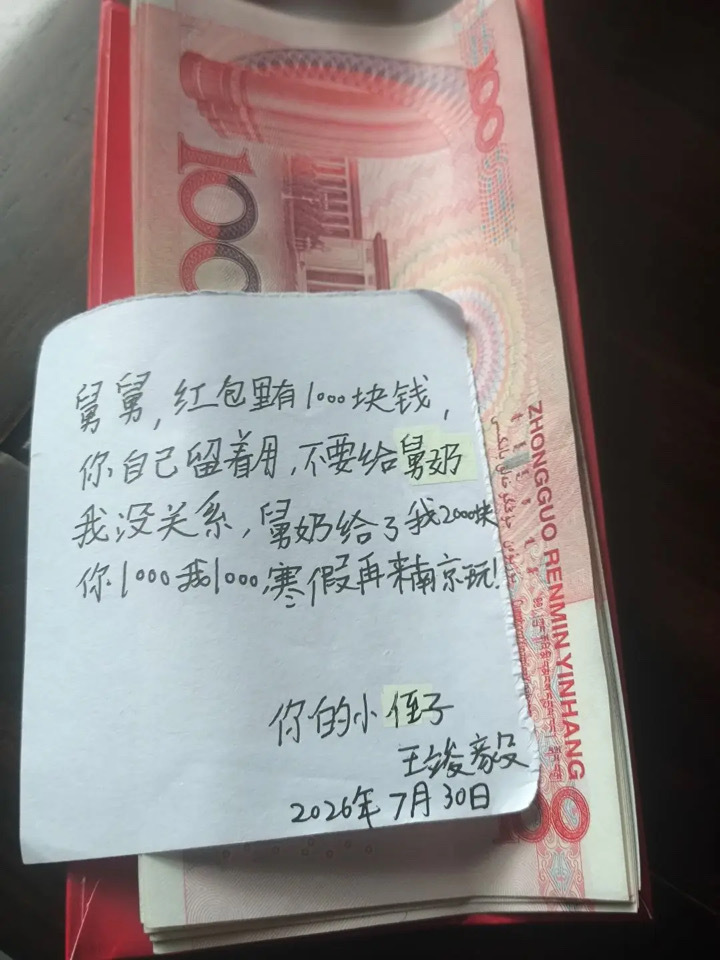 100
100
ZHONGGUO RENMIN YINHANG
舅舅，红包里有1000块钱，
你自己留着用，不要给舅奶
我没关系，舅奶给了我2000块
你1000我1000，寒假再来南京玩！
你的小侄子
王竣毅
2026年7月30日